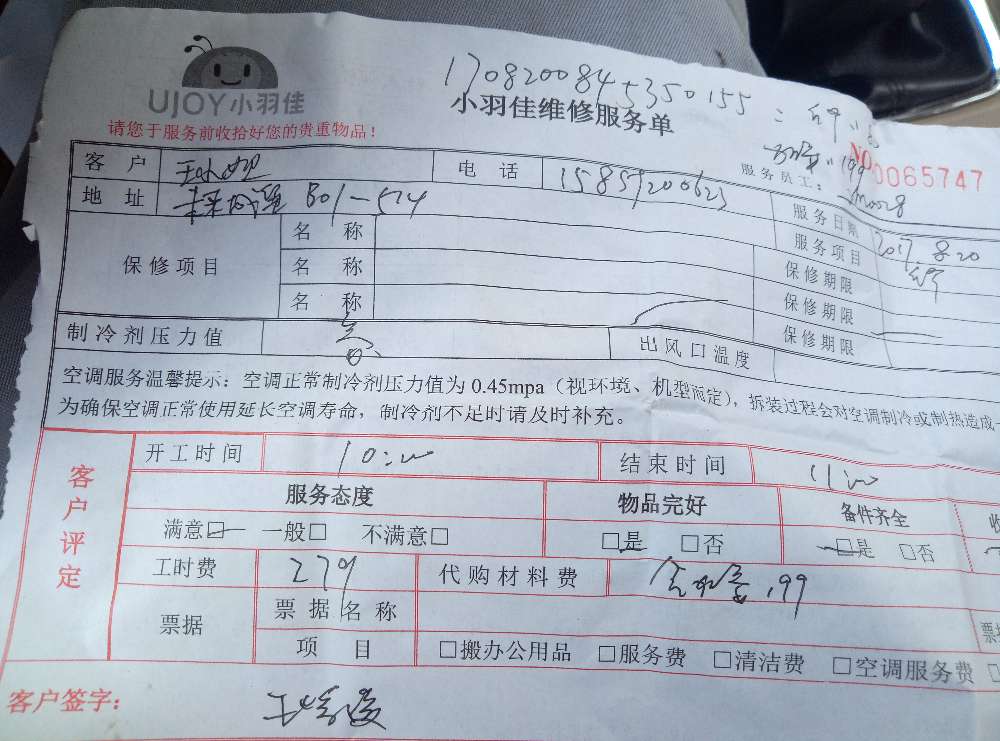 1708200845350155
UJOY小羽佳
小羽佳维修服务单
请您于服务前收拾好您的贵重物品！
NO 0065747
服务员工：
客 户
电 话 15859200623
服务日期 2017.8.20
地 址 B01-574
服务项目
保修项目
名 称
保修期限
名 称
保修期限
名 称
保修期限
制冷剂压力值
出风口温度
空调服务温馨提示：空调正常制冷剂压力值为 0.45mpa（视环境、机型而定），拆装过程会对空调制冷或制热造成
为确保空调正常使用延长空调寿命，制冷剂不足时请及时补充。
客户评定
开工时间 10:00
结束时间 11:00
服务态度
物品完好
备件齐全
满意□ 一般□ 不满意□
□是 □否
□是 □否
工时费 279
代购材料费 199
票据
票 据 名 称
项 目
□搬办公用品 □服务费 □清洁费 □空调服务费
客户签字：